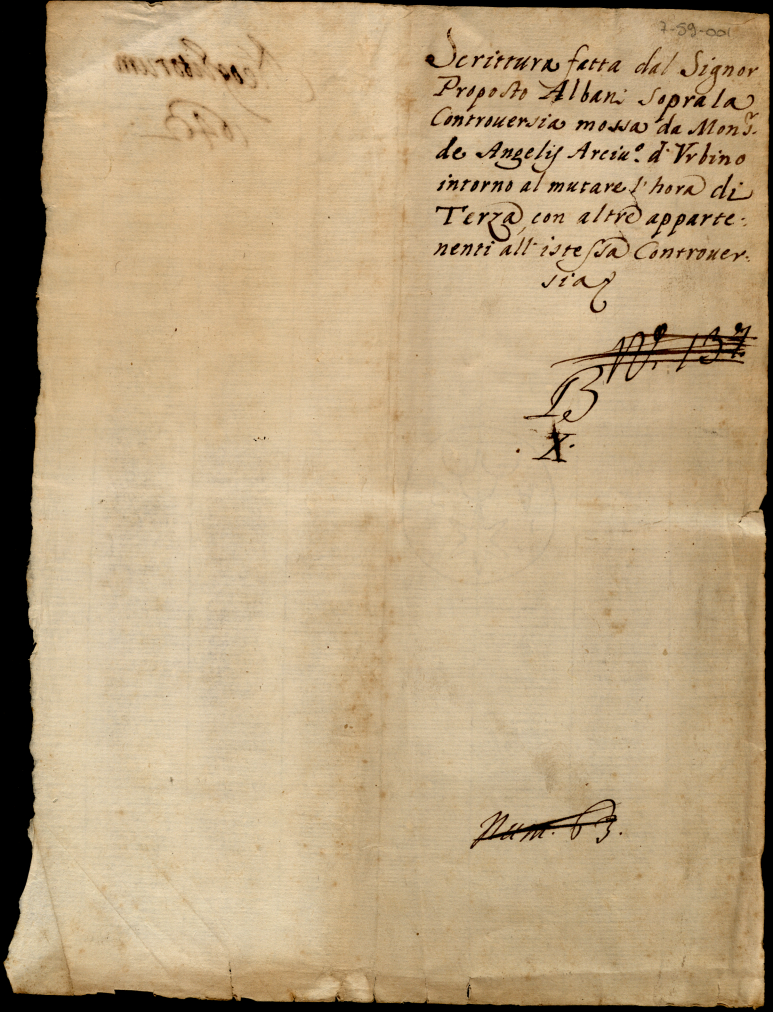 7-59-001
Scrittura fatta dal Signor
Proposto Albani sopra la
Controuersia mossa da Mons.r
de Angelis Arciu.o d'Vrbino
intorno al mutare l'hora di
Terza, con altre apparte:
nenti all'istessa Controuer:
sia
N.o 137
B
X.
Num. 63.